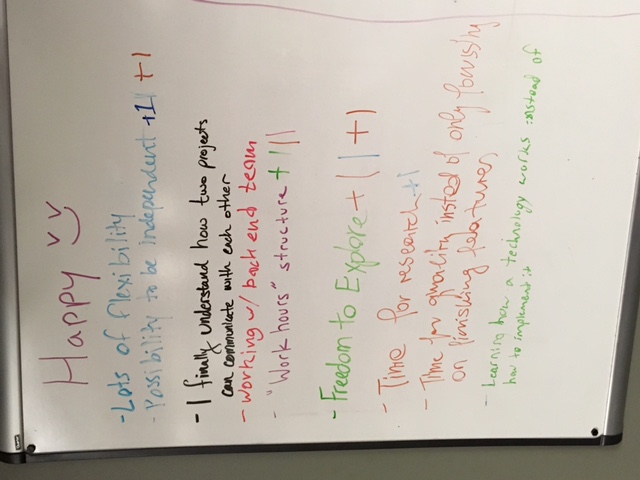 Happy
-Lots of flexibility
-Possibility to be independent +1| +1
-I finally understand how two projects
can communicate with each other
-Working w/ back end team
-"Work hours" structure +|||
-Freedom to Explore +||+1
-Time for research +1
-Time for quality instead of only focussing
on finishing features
-Learning how a technology works instead of
how to implement it